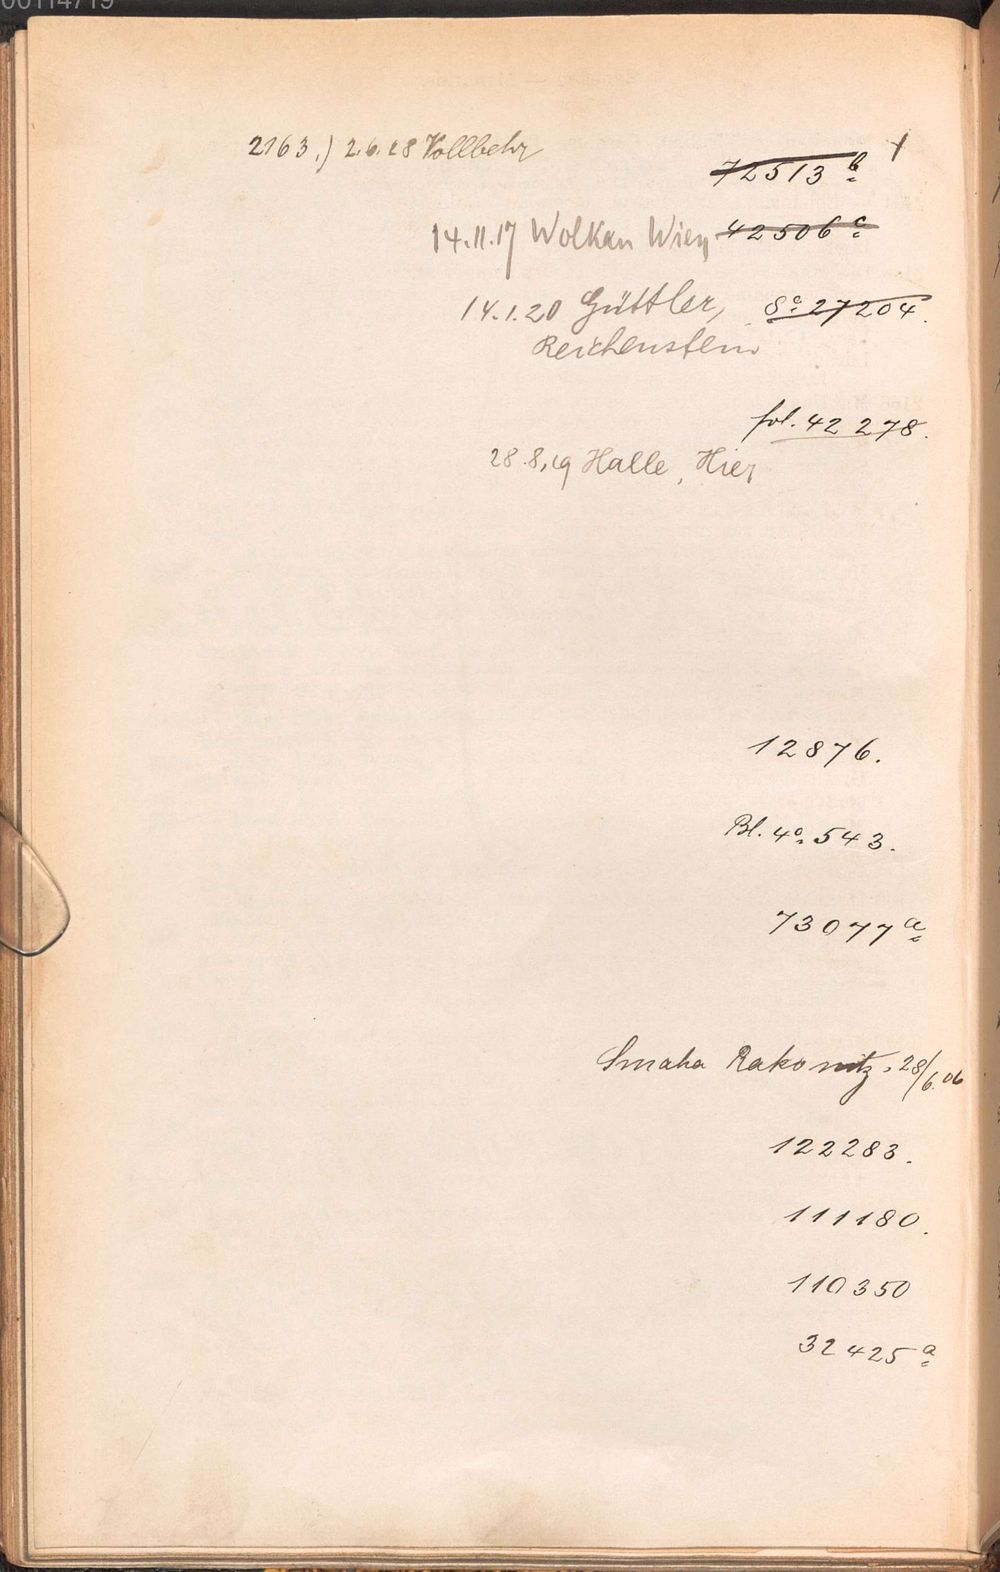 00114719
2163.) 2.6.28 Vollbehr
72513 b
14.11.17 Wolkan Wien 42506 c
14.1.20 Güttler, 8° 27204.
Reichenstein
fol. 42278.
28.8.19 Halle, Hier
12876.
Bl. 4°. 543.
73077 a
Smaha Rakonitz. 28/6.06
122283.
111180.
110350
32425 a